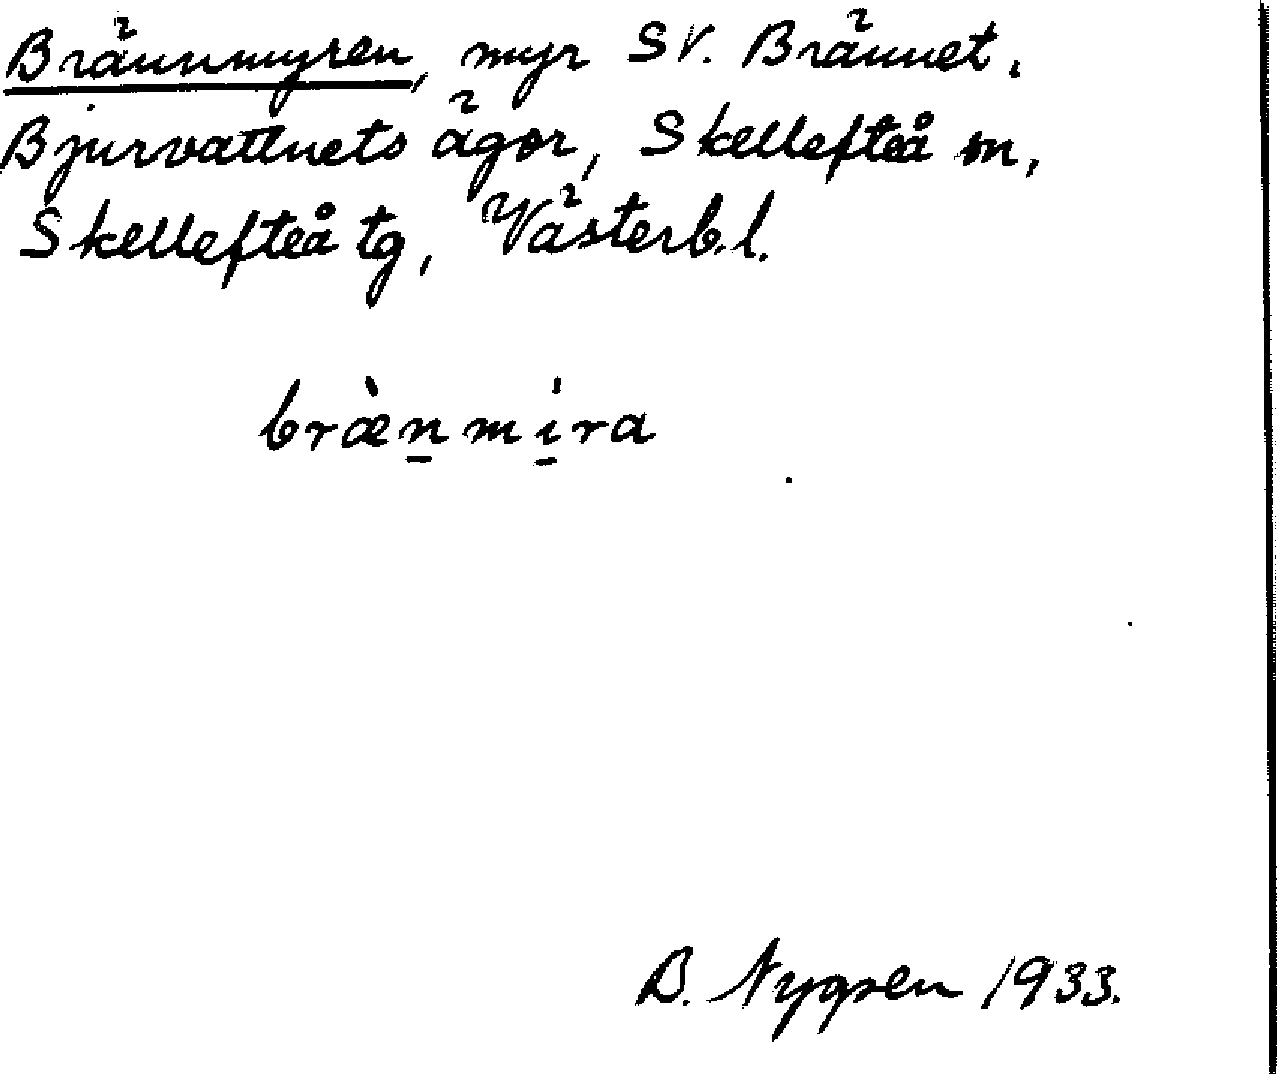 Brännmyren, myr SV. Brännet,
Bjurvattnets ägor, Skellefteå sn,
Skellefteå tg, Västerb.l.
bràen̲mi̲̍ra
B. Nygren 1933.